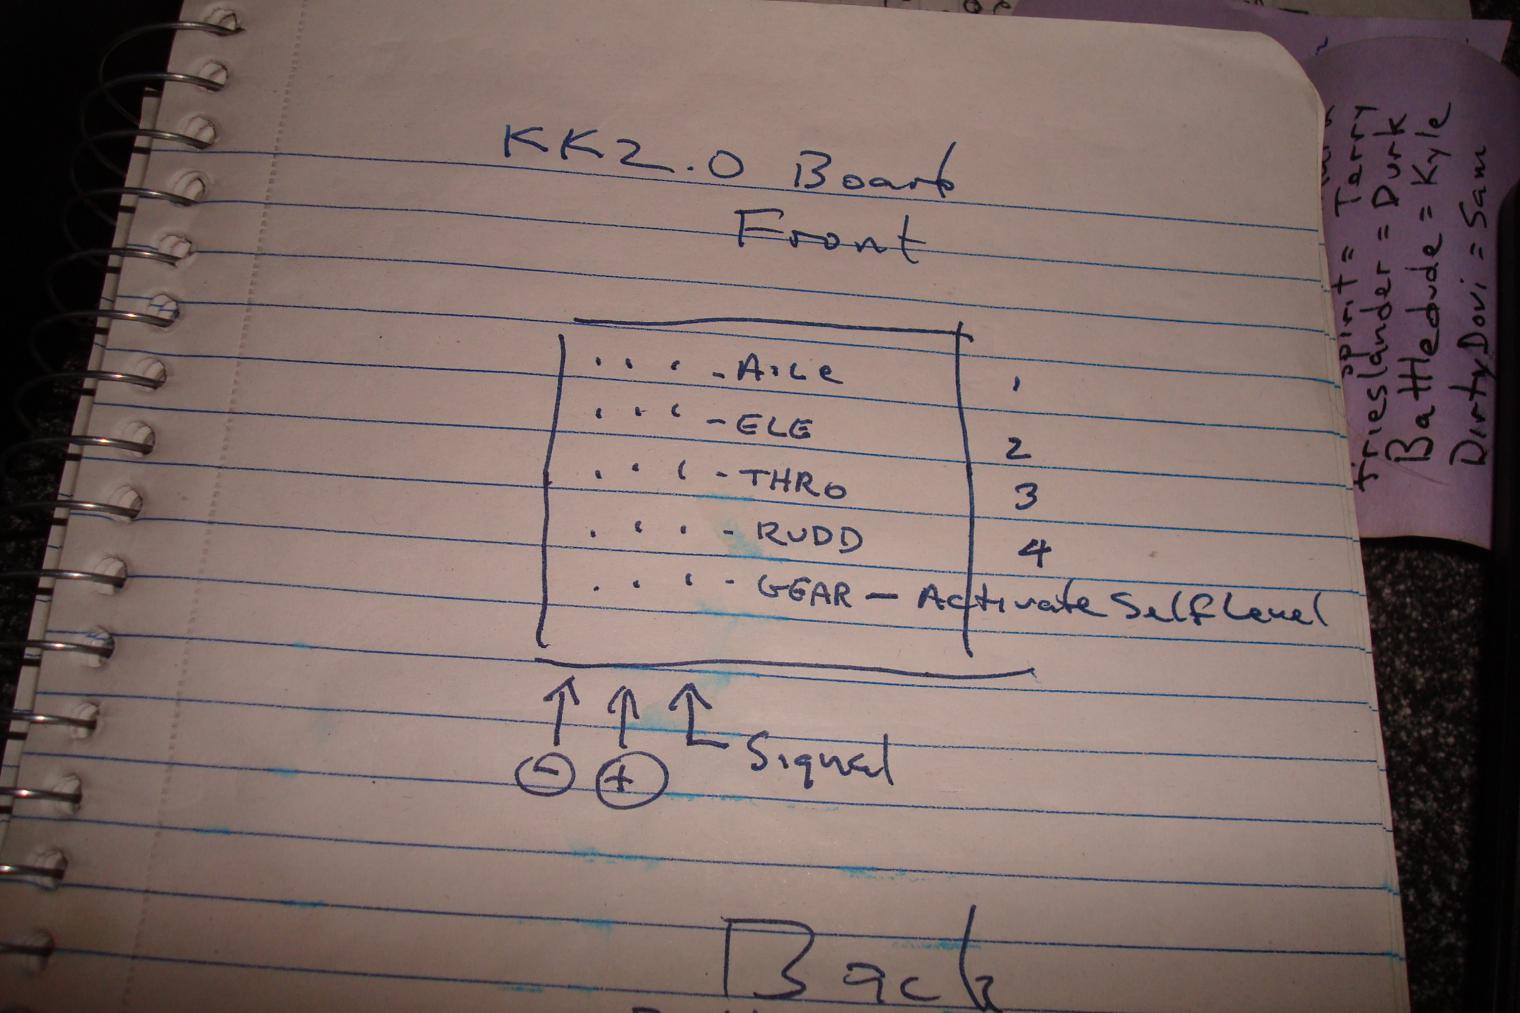 KK2.0 Board
Front
- AiLe 1
- ELE 2
- THRO 3
- RUDD 4
- GEAR — Activate Self Level
- + Signal
Back
spirit = Terry
frieslander = Durk
Battledude = Kyle
DirtyDovi = Sam